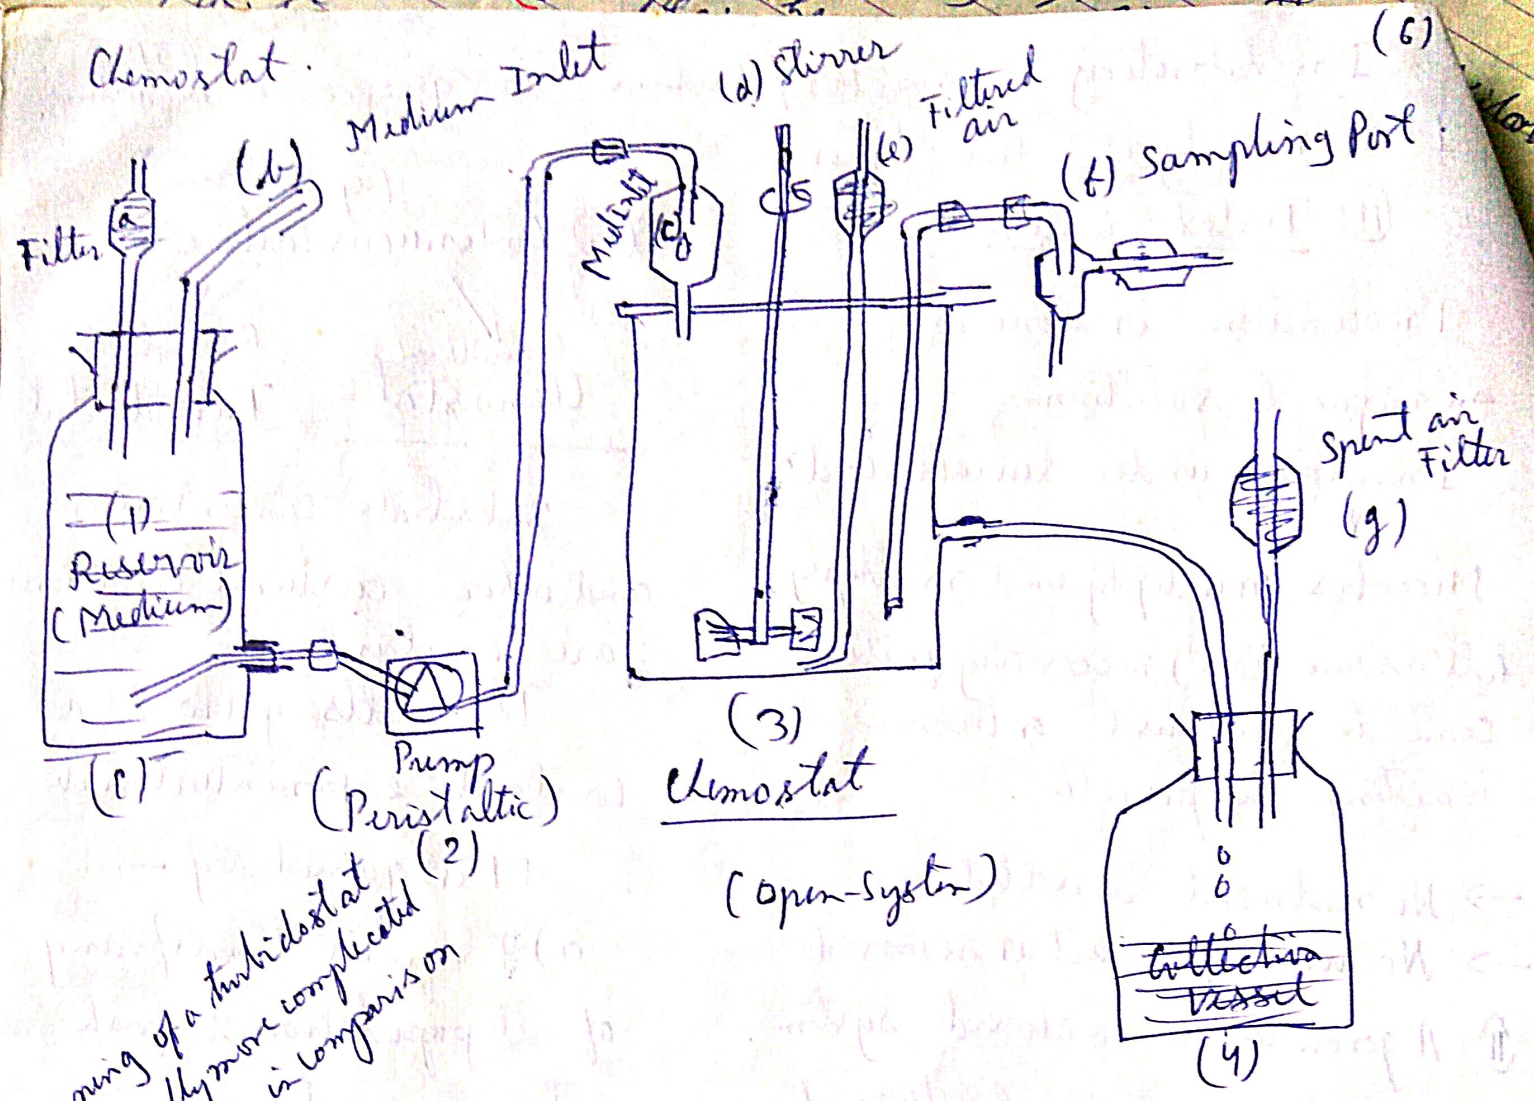 (6)
Chemostat.
Medium Inlet
(b)
(d) Stirrer
Filtered
air
(e)
(f) Sampling Port.
a
Filter
Med inlt
(c)
(1)
Reservoir
(Medium)
(c)
Pump
(Peristaltic)
(2)
(3)
Chemostat
(Open-System)
Spent air
Filter
(g)
Collection
Vessel
(4)
ning of a turbidostat
lly more complicated
in comparison